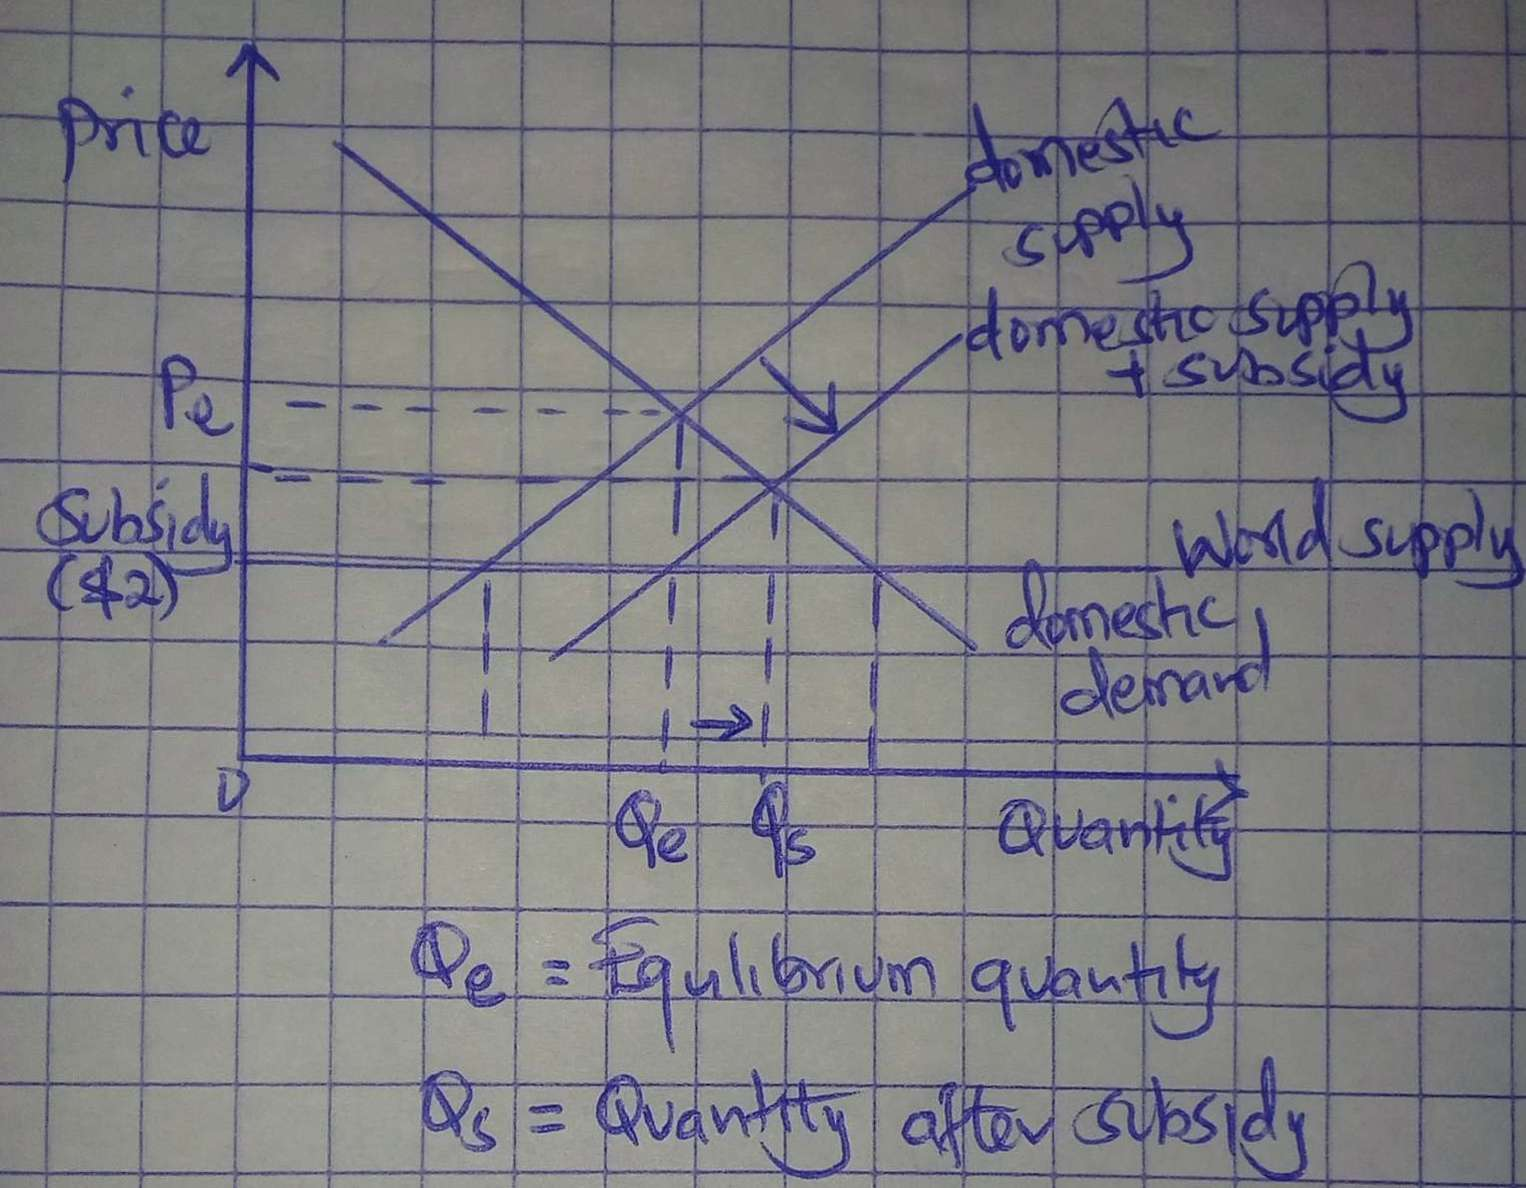 Price
domestic
supply
domestic supply
+ subsidy
Pe
Subsidy
($2)
World supply
domestic
demand
0
Qe
Qs
Quantity
Qe = Equlibrium quantity
Qs = Quantity after subsidy